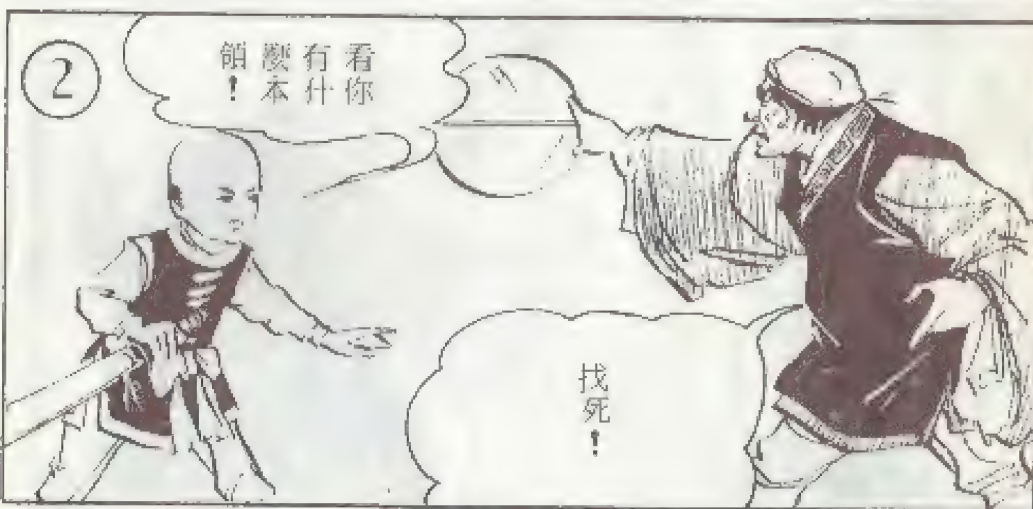 ②
看你
有什
麼本
領！
找死！